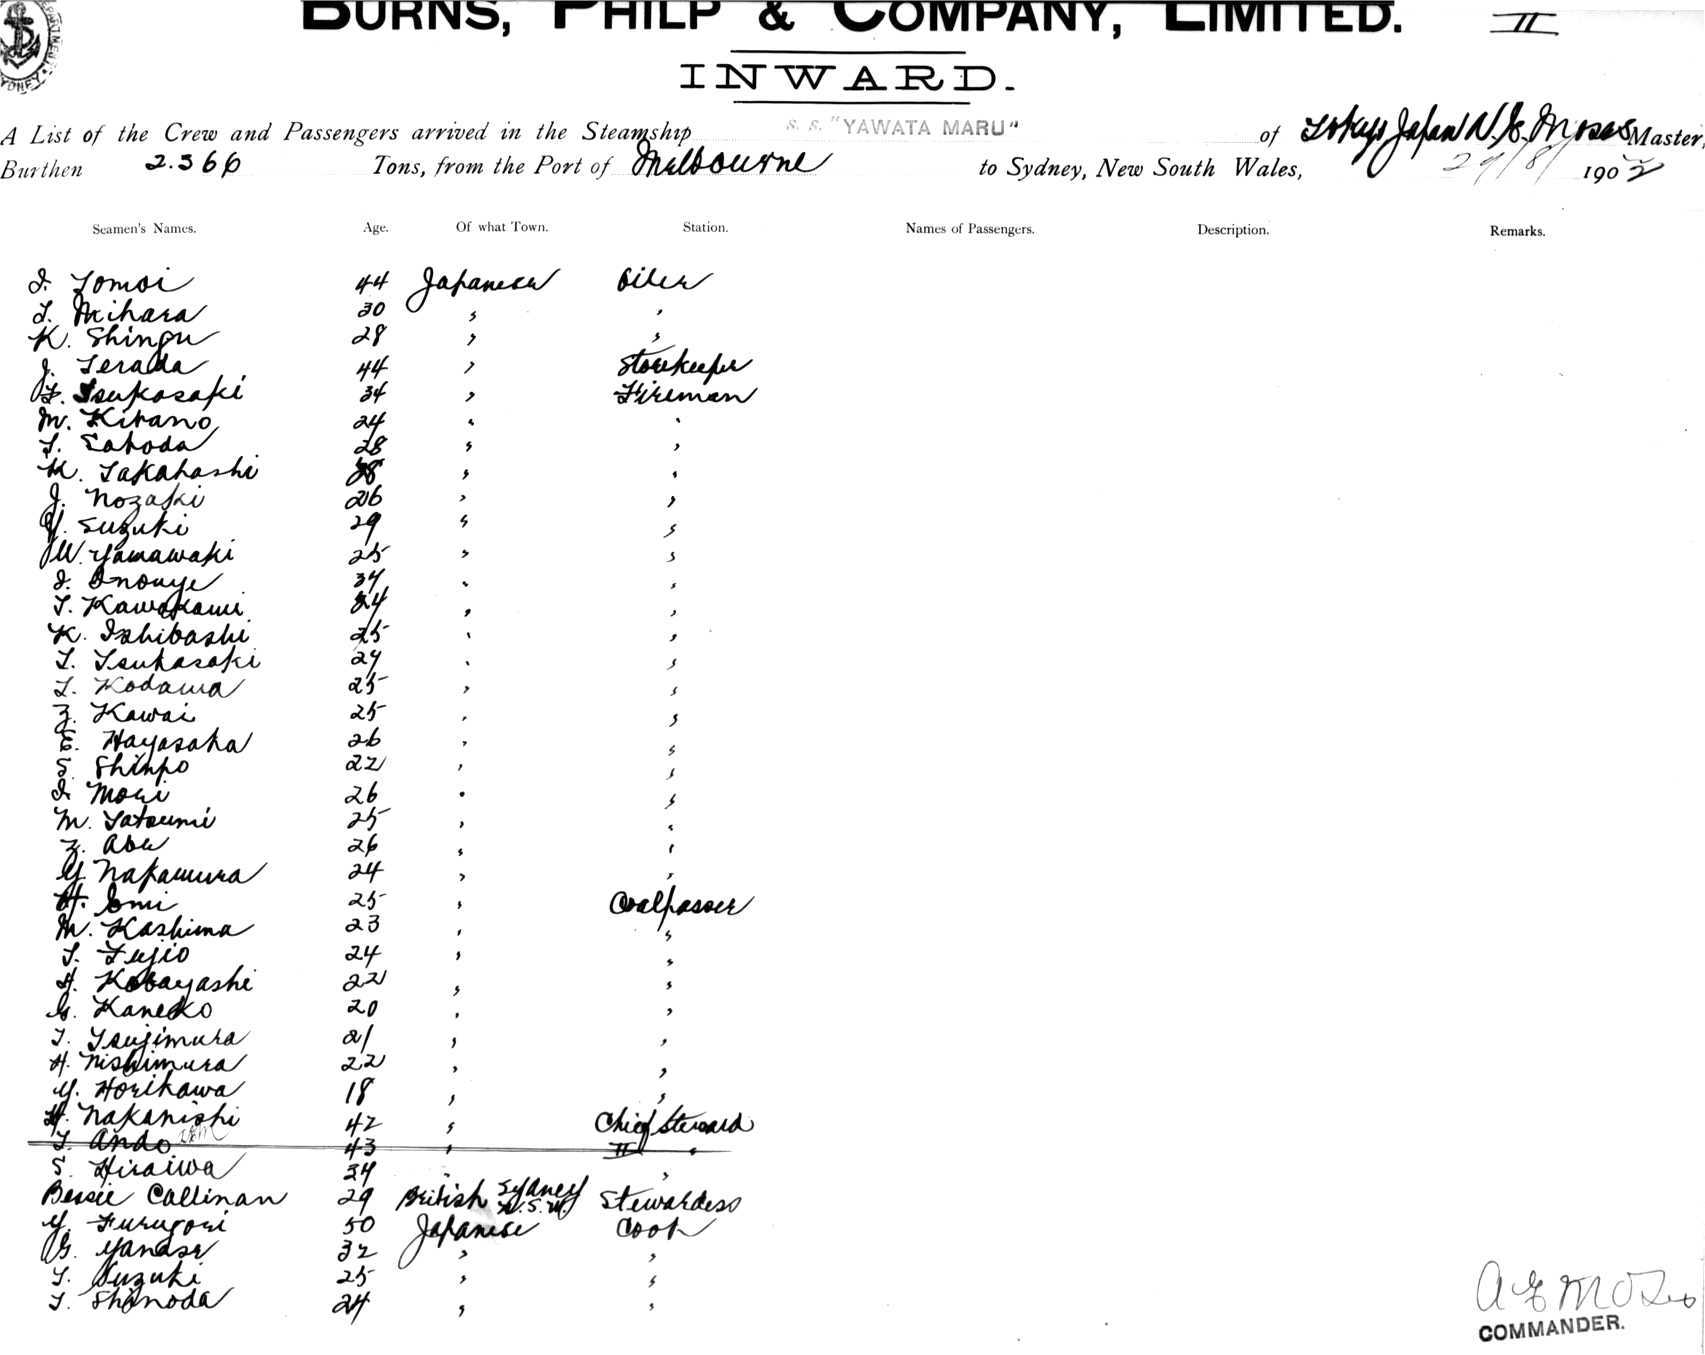 BURNS, PHILP & COMPANY, LIMITED. II
INWARD.
A List of the Crew and Passengers arrived in the Steamship S. S. "YAWATA MARU" of Tokyo Japan A. E. Moses Master,
Burthen 2.366 Tons, from the Port of Melbourne to Sydney, New South Wales, 29/8/ 1902
Seamen's Names. Age. Of what Town. Station. Names of Passengers. Description. Remarks.
I. Tomoi 44 Japanese Oiler
T. Mihara 30 " "
K. Shingu 28 " "
J. Terada 44 " Storekeeper
T. Tsukasaki 34 " Fireman
M. Kitano 24 " "
T. Sakoda 28 " "
K. Takahashi 28 " "
J. Nozaki 26 " "
Y. Suzuki 29 " "
W. Yamawaki 25 " "
I. Inouye 34 " "
T. Kawakami 24 " "
K. Ishibashi 25 " "
T. Tsukasaki 24 " "
T. Kodama 25 " "
Z. Kawai 25 " "
E. Hayasaka 26 " "
S. Shinpo 22 " "
I. Mori 26 " "
M. Tatsumi 25 " "
Z. Abe 26 " "
Y. Nakamura 24 " "
H. Emi 25 " Coalpasser
M. Kashima 23 " "
T. Fujio 24 " "
H. Kobayashi 22 " "
G. Kaneko 20 " "
T. Tsujimura 21 " "
H. Nishimura 22 " "
Y. Horikawa 18 " "
H. Nakanishi 42 " Chief Steward
T. Ando 43 " II "
S. Hiraiwa 34 " "
Bessie Callinan 29 British Sydney N.S.W. Stewardess
Y. Furugori 50 Japanese Cook
G. Yanase 32 " "
T. Suzuki 25 " "
T. Shinoda 24 " "
A E Moses
COMMANDER.